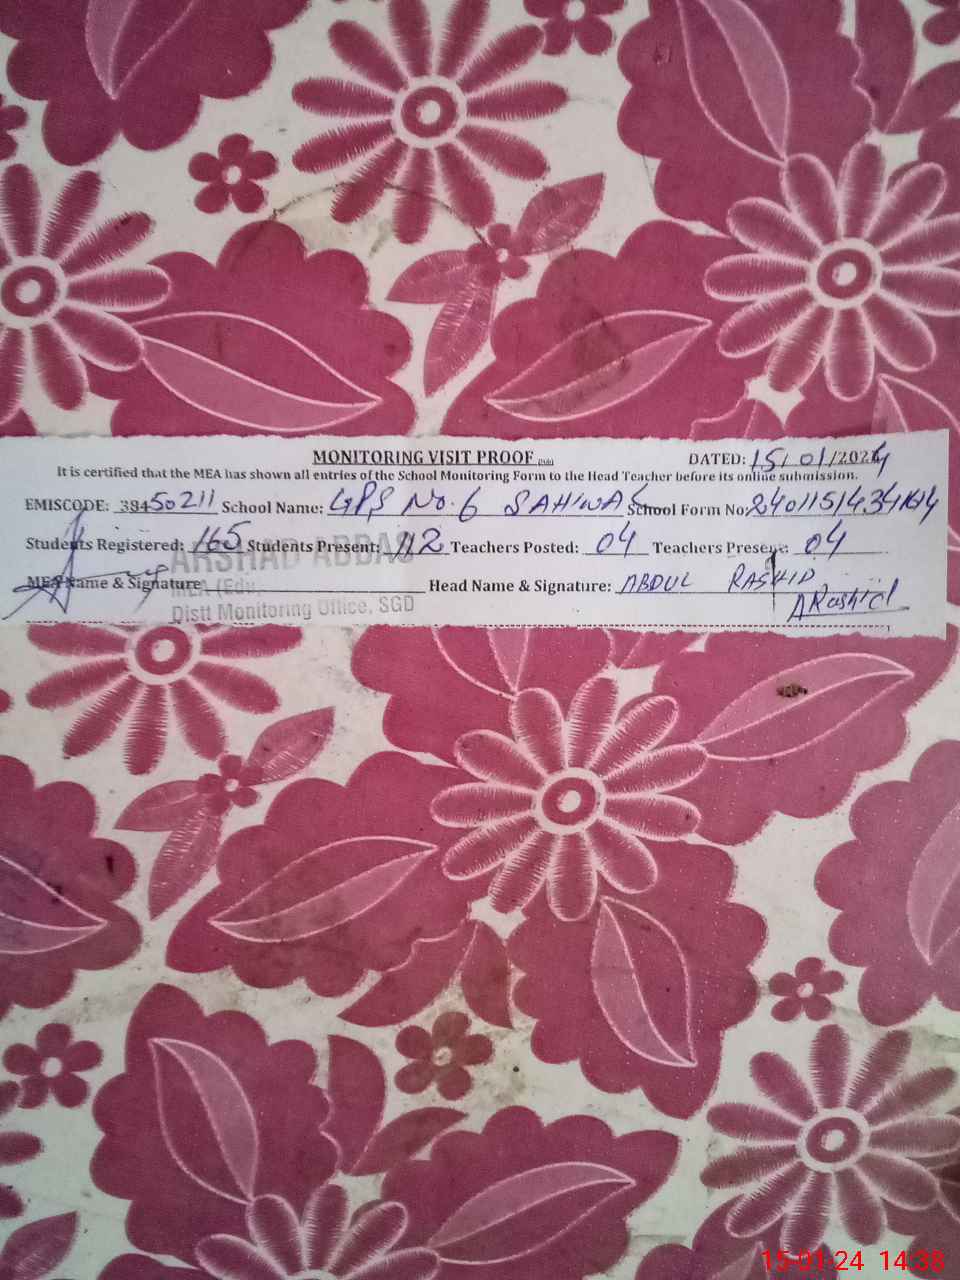 MONITORING VISIT PROOF DATED: 15/01/2024
It is certified that the MEA has shown all entries of the School Monitoring Form to the Head Teacher before its online submission.
EMISCODE: 38450211 School Name: GPS No. 6 SAHIWAL School Form No:
Students Registered: 165 Students Present: 112 Teachers Posted: 04 Teachers Present: 04
ARSHAD ABBAS
MEA Name & Signature Head Name & Signature: ABDUL RASHID
MEA (Edu)
ARashid
Distt Monitoring Office, SGD
15-01-24 14:38